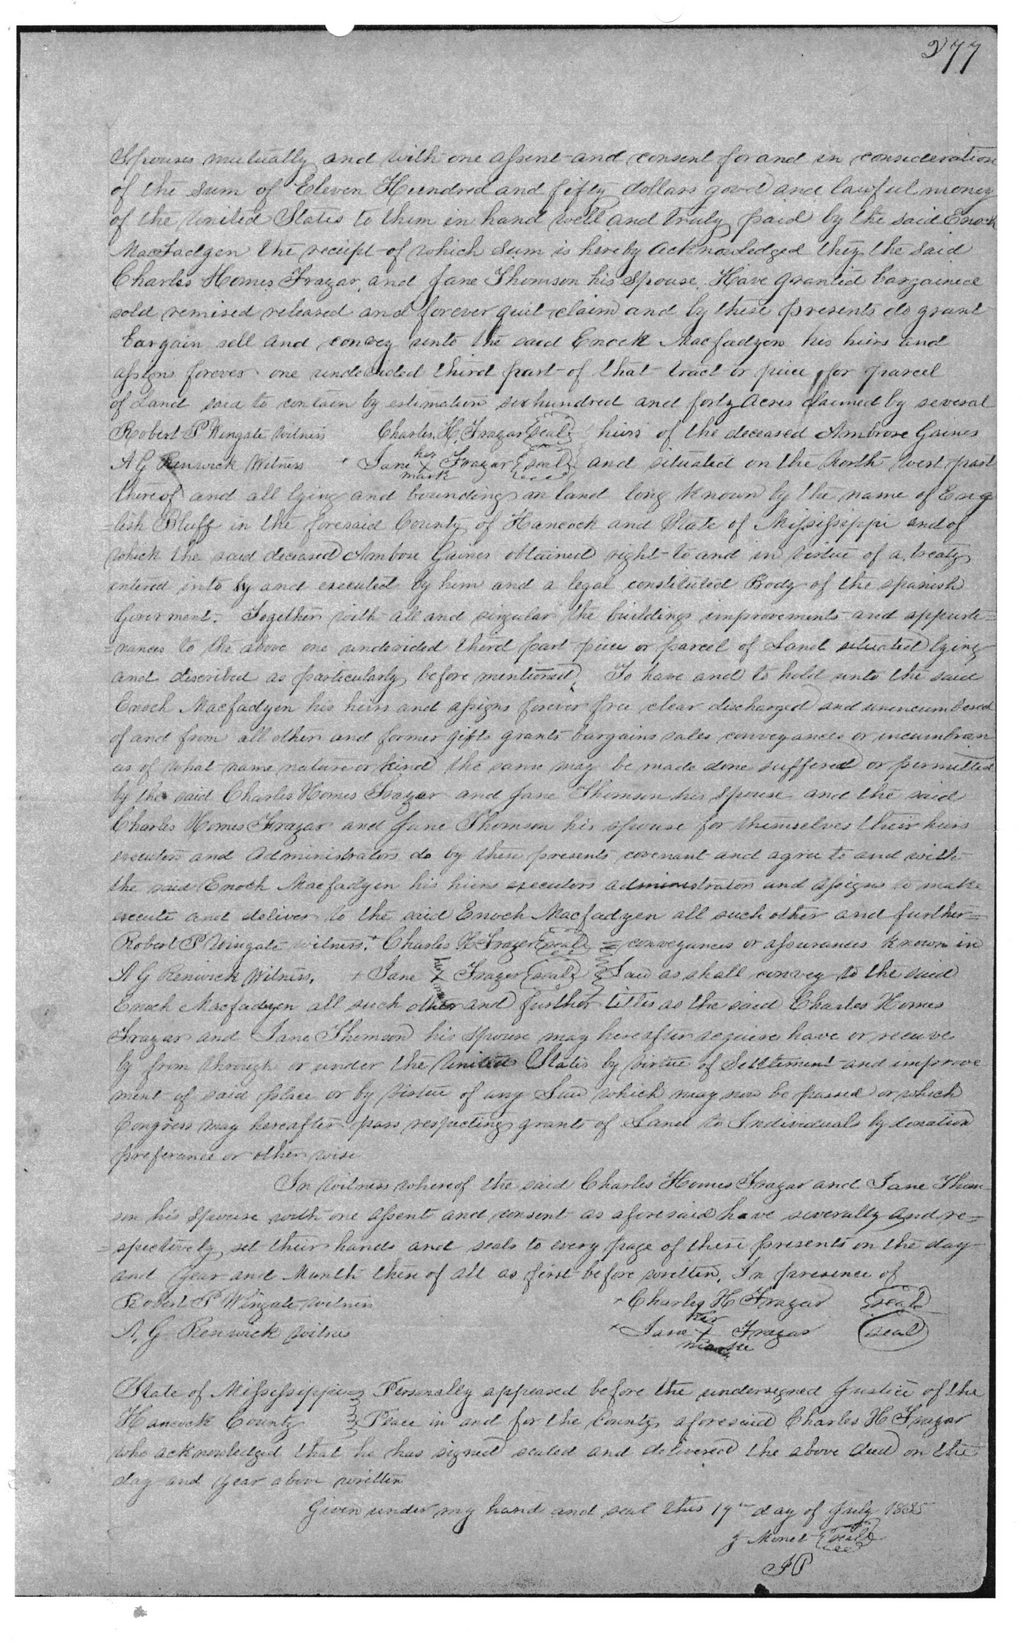 277
Spouses mutually and with one assent and consent for and in consideration
of the sum of Eleven Hundred and fifty dollars good and lawful money
of the United States to them in hand well and truly paid by the said Enoch
Macfadgen the receipt of which sum is hereby acknowledged they the said
Charles Homes Frazar and Jane Thomson his Spouse. Have granted bargained
sold remised released and forever quit claim and by these presents do grant
bargain sell and convey unto the said Enock Macfadyen his heirs and
assigns forever one undivided third part of that tract or piece or parcel
of Land said to contain by estimation six hundred and forty Acres claimed by several
Robert P Wingate Witness Charles H. Frazar (Seal) heirs of the deceased Ambrose Gaines
A G Renwick Witness Jane her X mark Frazar (Seal) and situated on the North west part
thereof and all lying and bounding on land long known by the name of Eng
lish Bluff in the foresaid County of Hancock and State of Mississippi and of
which the said deceased Ambose Gaines obtained right to and in virtue of a treaty
entered into by and executed by him and a legal constituted Body of the Spanish
Goverment. Together with all and singular the buildings improvements and appurte=
=nances to the above one undivided third part piece or parcel of Land situated lying
and discribed as particularly before mentioned, To have and to hold unto the said
Enoch Macfadyen his heirs and assigns forever free clear discharged and unencumbered
of and from all other and former gifts grants bargains sales conveyances or incumbran
ces of what name nature or kind the same may be made done suffered or permitted
by the said Charles Homes Frazar and Jane Thomson his Spouse and the said
Charles Homes Frazar and Jane Thomson his spouse for themselves their heirs
executors and Administrators do by these presents covenant and agree to and with
the said Enoch Macfadyen his heirs executors administrators and assigns to make
execute and deliver to the said Enoch Macfadyen all such other and further=
Robert P Wingate witness. + Charles H Frazer (seal) = conveyances or assurances known in
A G Renwick Witness, + Jane her X mark Frazer (seal) Law as shall convey to the said
Enoch Macfadyen all such other and further titles as the said Charles Homes
Frazar and Jane Thomson his spouse may hereafter require have or receive
by from through or under the United States by virtue of Settlement and improve
ment of said place or by virtue of any Law which may now be passed or which
Congress may hereafter pass respecting grants of Land to Individuals by donation
preferance or other wise
In Witness whereof the said Charles Homes Frazar and Jane Thom
son his Spouse with one assent and consent as aforesaid have severally and re=
=spectively set their hands and seals to every page of these presents on the day
and year and Month thereof all as first before written. In presence of
Robert P Wingate witness + Charles H Frazar (seal)
A, G Renwick Witness + Jane her X mark Frazar (seal)
State of Mississippi Personally appeared before the undersigned Justice of the
Hancock County Peace in and for the County aforesaid Charles H Frazar
who acknowledged that he has signed sealed and delivered the above deed on the
day and year above written
Given under my hand and seal this 19th day of July
J Monet (seal)
JP